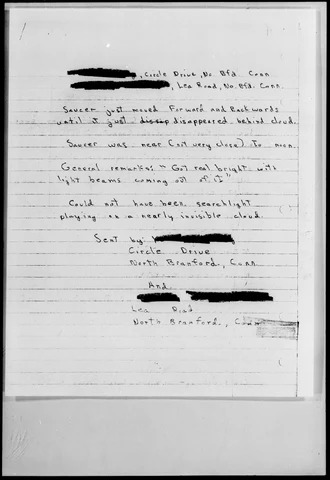 , Circle Drive, No Bfd. Conn
, Lea Road, No. Bfd. Conn.
Saucer just moved forward and backwards
until it just disappeared behind cloud.
Saucer was near (not very close) to moon.
General remarks: "Got real bright with
light beams coming out of it"
Could not have been searchlight
playing on a nearly invisible cloud.
Sent by:
Circle Drive
North Branford, Conn
And
Lea Road
North Branford, Conn